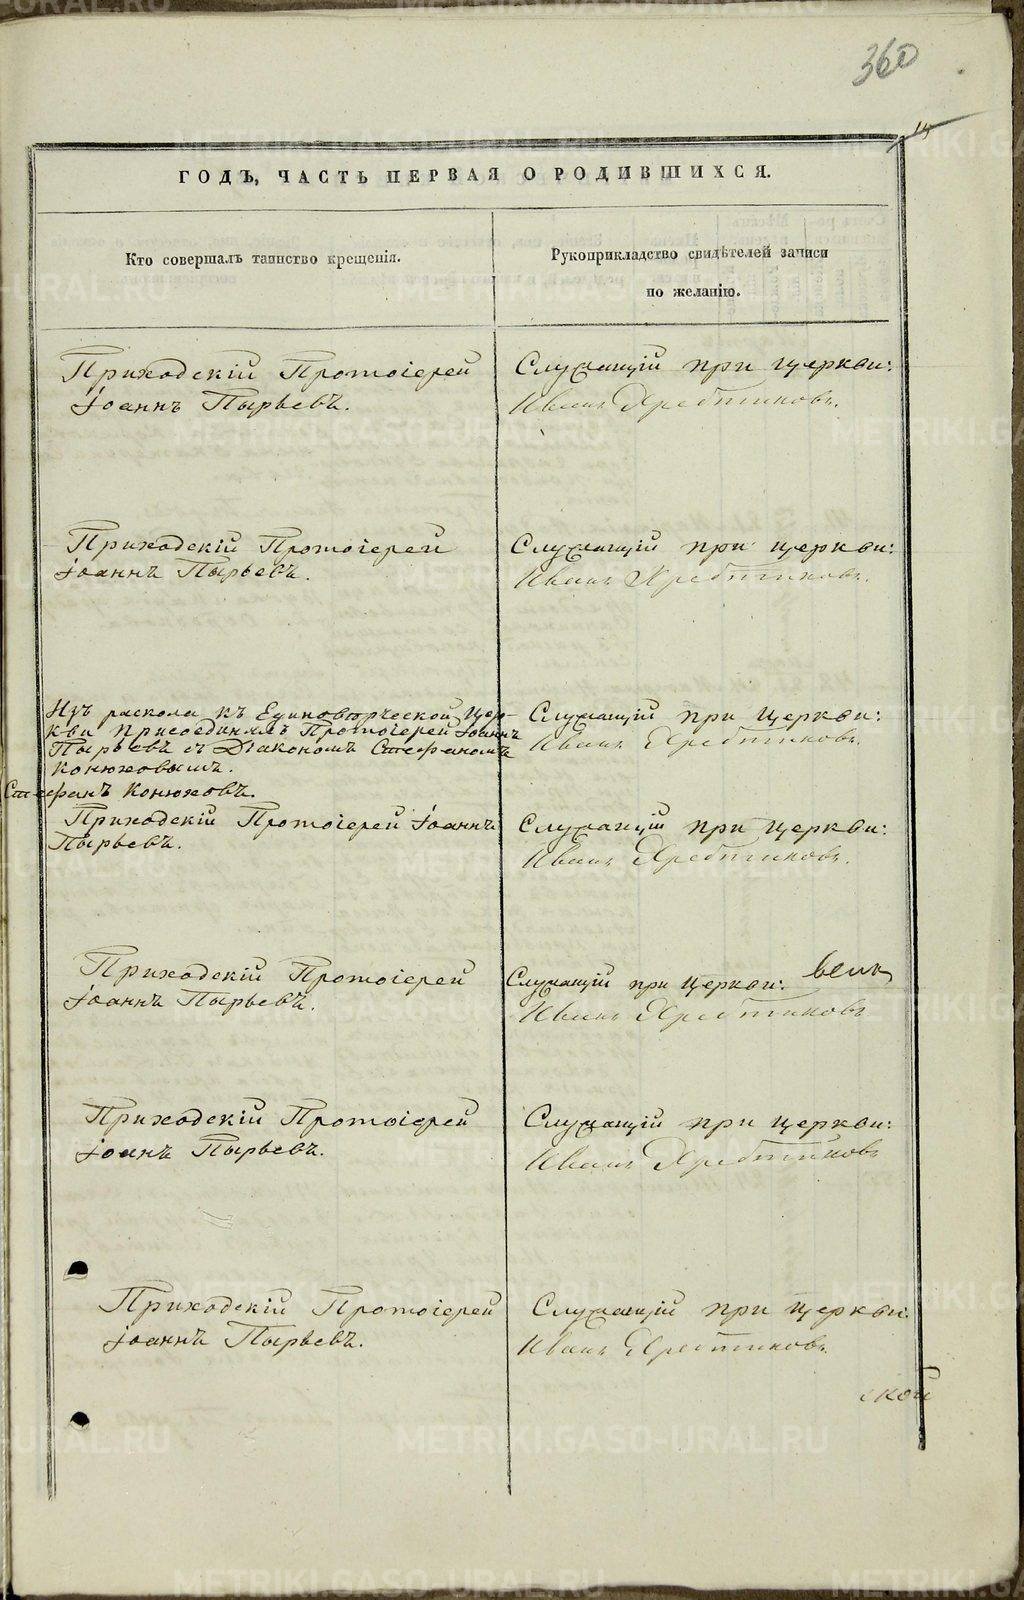 360
15
ГОДЪ, ЧАСТЬ ПЕРВАЯ О РОДИВШИХСЯ.
Кто совершалъ таинство крещенія.
Рукоприкладство свидѣтелей записи
по желанію.
Приходскій Протоіерей
Іоаннъ Пырьевъ.
Служащій при церкви:
Иванъ
Приходскій Протоіерей
Іоаннъ Пырьевъ.
Служащій при церкви:
Иванъ
Изъ раскола къ Единовѣрческой Цер-
кви присоединялъ Протоіерей Іоаннъ
Пырьевъ съ Діакономъ Стефаномъ
Конюховымъ.
Стефанъ Конюховъ.
Служащій при Церкви:
Иванъ
Приходскій Протоіерей Іоаннъ
Пырьевъ.
Служащій при Церкви:
Иванъ
Приходскій Протоіерей
Іоаннъ Пырьевъ.
Служащій при Церкви:
Иванъ
Приходскій Протоіерей
Іоаннъ Пырьевъ.
Служащій при церкви:
Иванъ
Приходскій Протоіерей
Іоаннъ Пырьевъ.
Служащій при церкви:
Иванъ
ской
METRIKI.GASO-URAL.RU